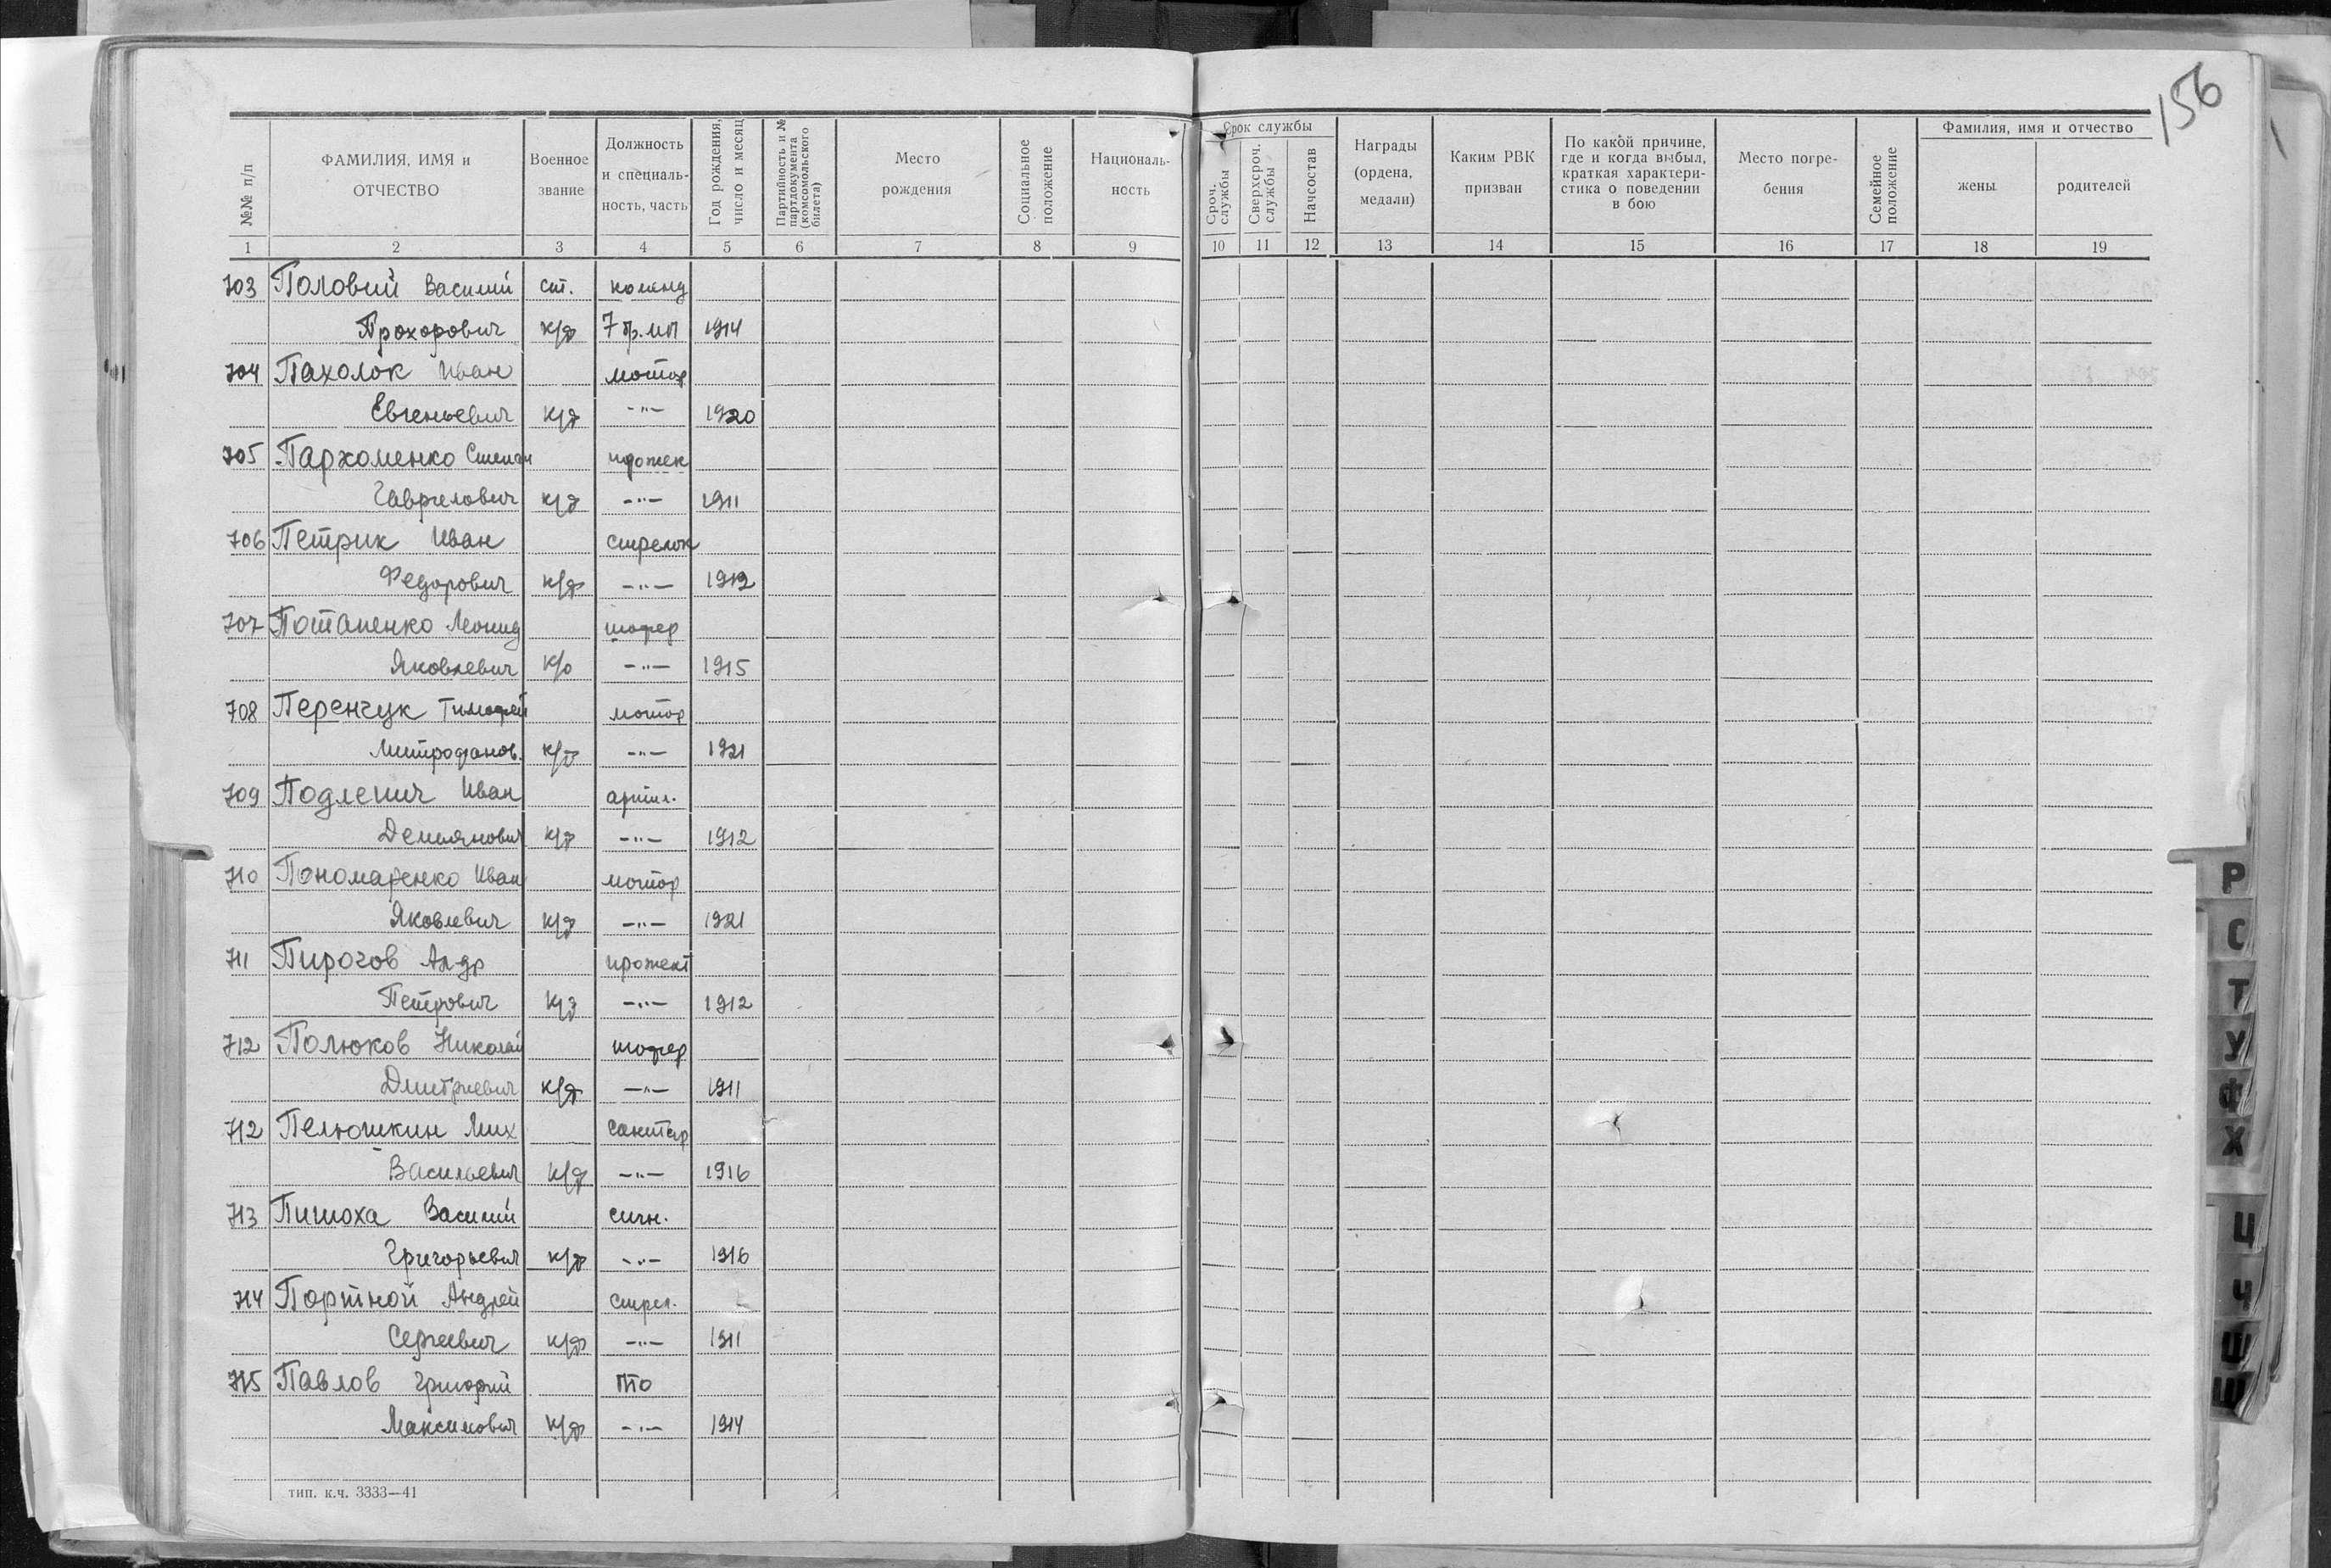 156
№№ п/п
ФАМИЛИЯ, ИМЯ и ОТЧЕСТВО
Военное звание
Должность и специаль-ность, часть
Год рождения, число и месяц
Партийность и № партдокумента (комсомольского билета)
Место рождения
Социальное положение
Националь-ность
Срок службы
Сроч. службы
Сверхсроч. службы
Начсостав
Награды (ордена, медали)
Каким РВК призван
По какой причине, где и когда выбыл, краткая характери-стика о поведении в бою
Место погре-бения
Семейное положение
Фамилия, имя и отчество
жены
родителей
1 2 3 4 5 6 7 8 9 10 11 12 13 14 15 16 17 18 19
703 Половий Василий ст. команд
Прохорович к/ф 7 бр. мп 1914
704 Пахолок Иван мотор
Евгеньевич к/ф -"- 1920
705 Пархоменко Степан прожек
Гаврилович к/ф -"- 1911
706 Петрик Иван стрелок
Федорович к/ф -"- 1912
707 Потапенко Леонид шофер
Яковлевич к/о -"- 1915
708 Перенчук Тимофей мотор
Митрофанов. к/ф -"- 1921
709 Подлепич Иван артил.
Демьянович к/ф -"- 1912
710 Пономаренко Иван мотор
Яковлевич к/ф -"- 1921
711 Пирогов Ал-др прожект
Петрович к/ф -"- 1912
712 Полюков Николай шофер
Дмитриевич к/ф -"- 1911
712 Пелюшкин Мих санитар
Васильевич к/ф -"- 1916
713 Пишоха Василий сигн.
Григорьевич к/ф -"- 1916
714 Портной Андрей стрел.
Сергеевич к/ф -"- 1911
715 Павлов Григорий ПТО
Максимович к/ф -"- 1914
тип. к.ч. 3333—41
Р
С
Т
У
Ф
Х
Ц
Ч
Ш
Щ